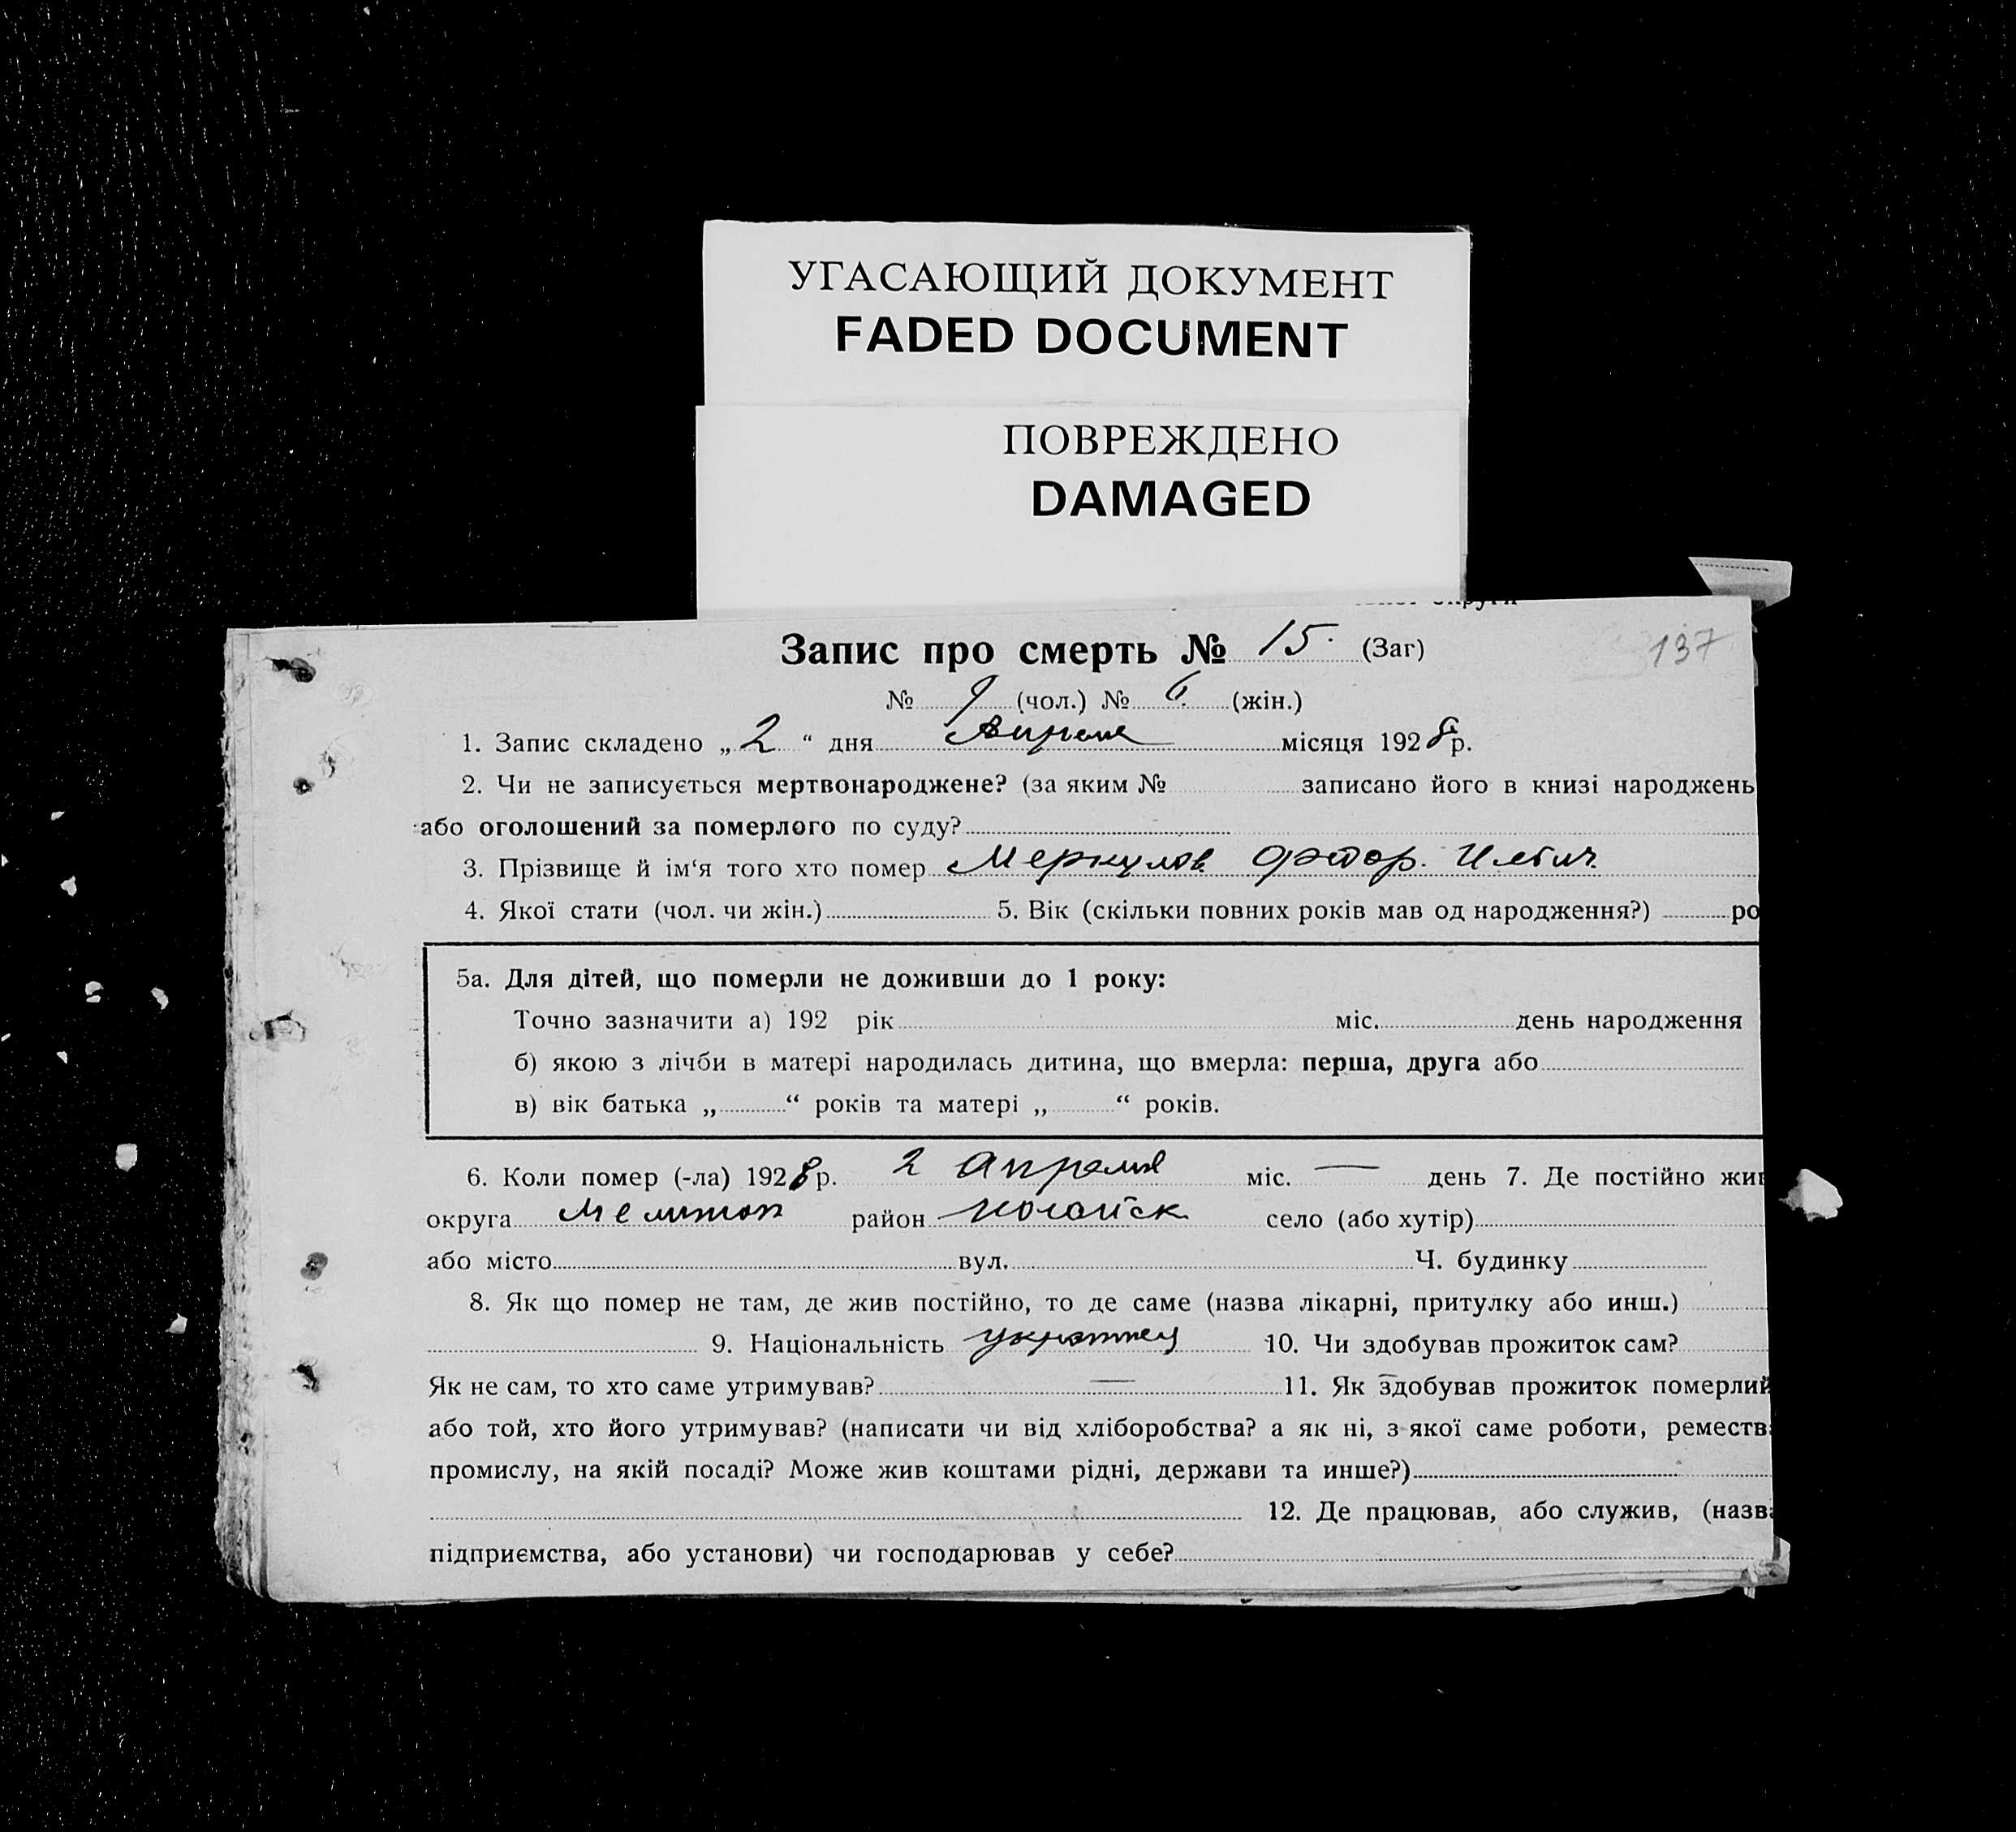 УГАСАЮЩИЙ ДОКУМЕНТ
FADED DOCUMENT
ПОВРЕЖДЕНО
DAMAGED
Запис про смерть № 15. (Заг)
137
№ 9 (чол.) № 6. (жін.)
1. Запис складено „ 2 “ дня Апреля місяця 1928 р.
2. Чи не записується мертвонароджене? (за яким № записано його в книзі народжень
або оголошений за померлого по суду?
3. Прізвище й ім‘я того хто помер Меркулов Фэдор. Ильич
4. Якої стати (чол. чи жін.) 5. Вік (скільки повних років мав од народження?) ро
5а. Для дітей, що померли не доживши до 1 року:
Точно зазначити а) 192 рік міс. день народження
б) якою з лічби в матері народилась дитина, що вмерла: перша, друга або
в) вік батька „ “ років та матері „ “ років.
6. Коли помер (-ла) 1928 р. 2 Апреля міс. — день 7. Де постійно жив
округа Мелитоп район Ногайск село (або хутір)
або місто вул. Ч. будинку
8. Як що помер не там, де жив постійно, то де саме (назва лікарні, притулку або инш.)
9. Національність 10. Чи здобував прожиток сам?
Як не сам, то хто саме утримував? — 11. Як здобував прожиток померлий
або той, хто його утримував? (написати чи від хліборобства? а як ні, з якої саме роботи, ремества
промислу, на якій посаді? Може жив коштами рідні, держави та инше?)
12. Де працював, або служив, (назва
підприємства, або установи) чи господарював у себе?